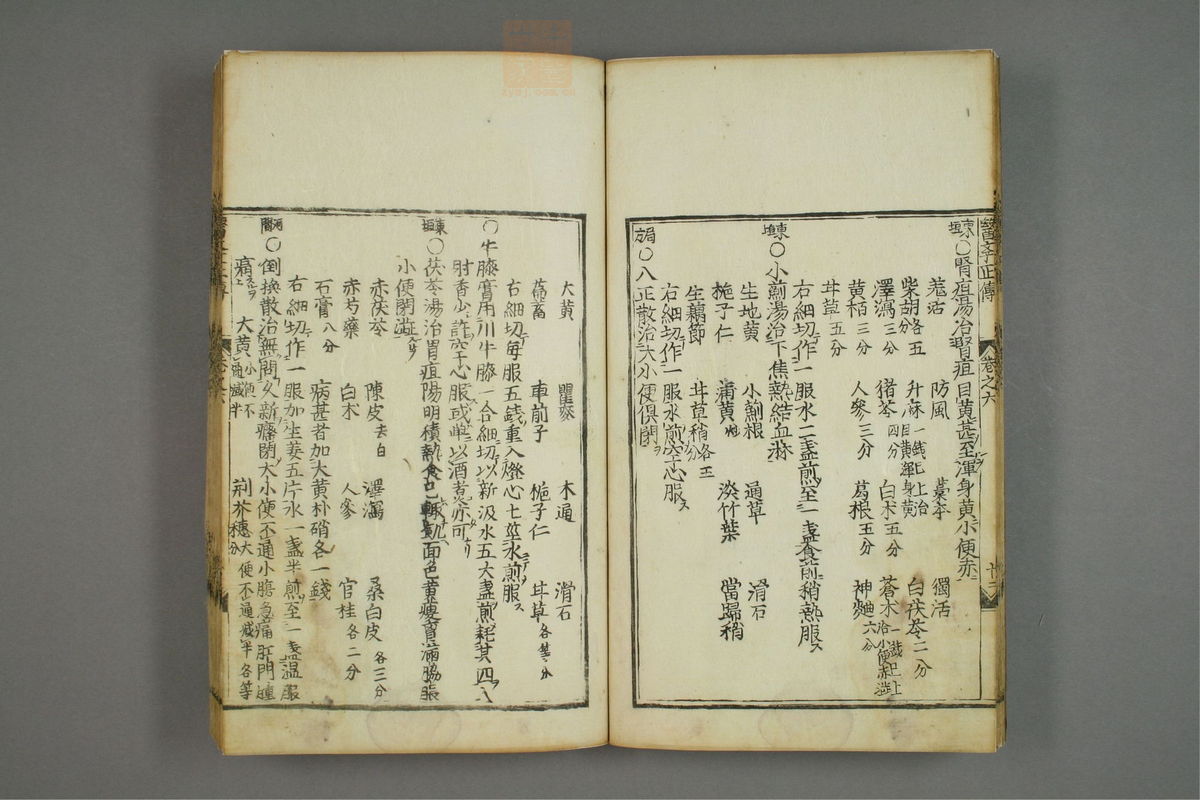 醫學正傳 卷之六
東垣○腎疸湯治腎疸目黃甚至渾身黃小便赤
羌活 防風 藁本 獨活
柴胡各五分 升麻 白茯苓二分
澤瀉三分 猪苓四分 白朮五分 蒼朮一錢已上治小便赤澁
黃栢三分 人參三分 葛根五分 神麯六分
甘草五分
右細切作一服水二盞煎至一盞食前稍熱服
東垣○小薊湯治下焦熱結血淋
生地黃 小薊根 通草 滑石
梔子仁 蒲黃炒 淡竹葉 當歸稍
生藕節 甘草稍各五分
右細切作一服水煎空心服
局方○八正散治大小便俱閉
大黃 瞿麥 木通 滑石
萹蓄 車前子 梔子仁 甘草各等分
右細切每服五錢重入燈心七莖水煎服
○牛膝膏用川牛膝一合細切以新汲水五大盞煎耗其四入
麝香少許空心服或單以酒煮亦可
東垣○茯苓湯治胃疸陽明積熱食已輒飢面色黃瘦胸滿脇脹
小便閉澁
赤茯苓 陳皮去白 澤瀉 桑白皮各三分
赤芍藥 白朮 人參 官桂各二分
石膏八分 病甚者加大黃朴硝各一錢
右細切作一服加生姜五片水一盞半煎至一盞溫服
河間○倒換散治無問久新癃閉大小便不通小腹急痛肛門腫
痛 大黃小便不通減半 荊芥穗大便不通減半各等分